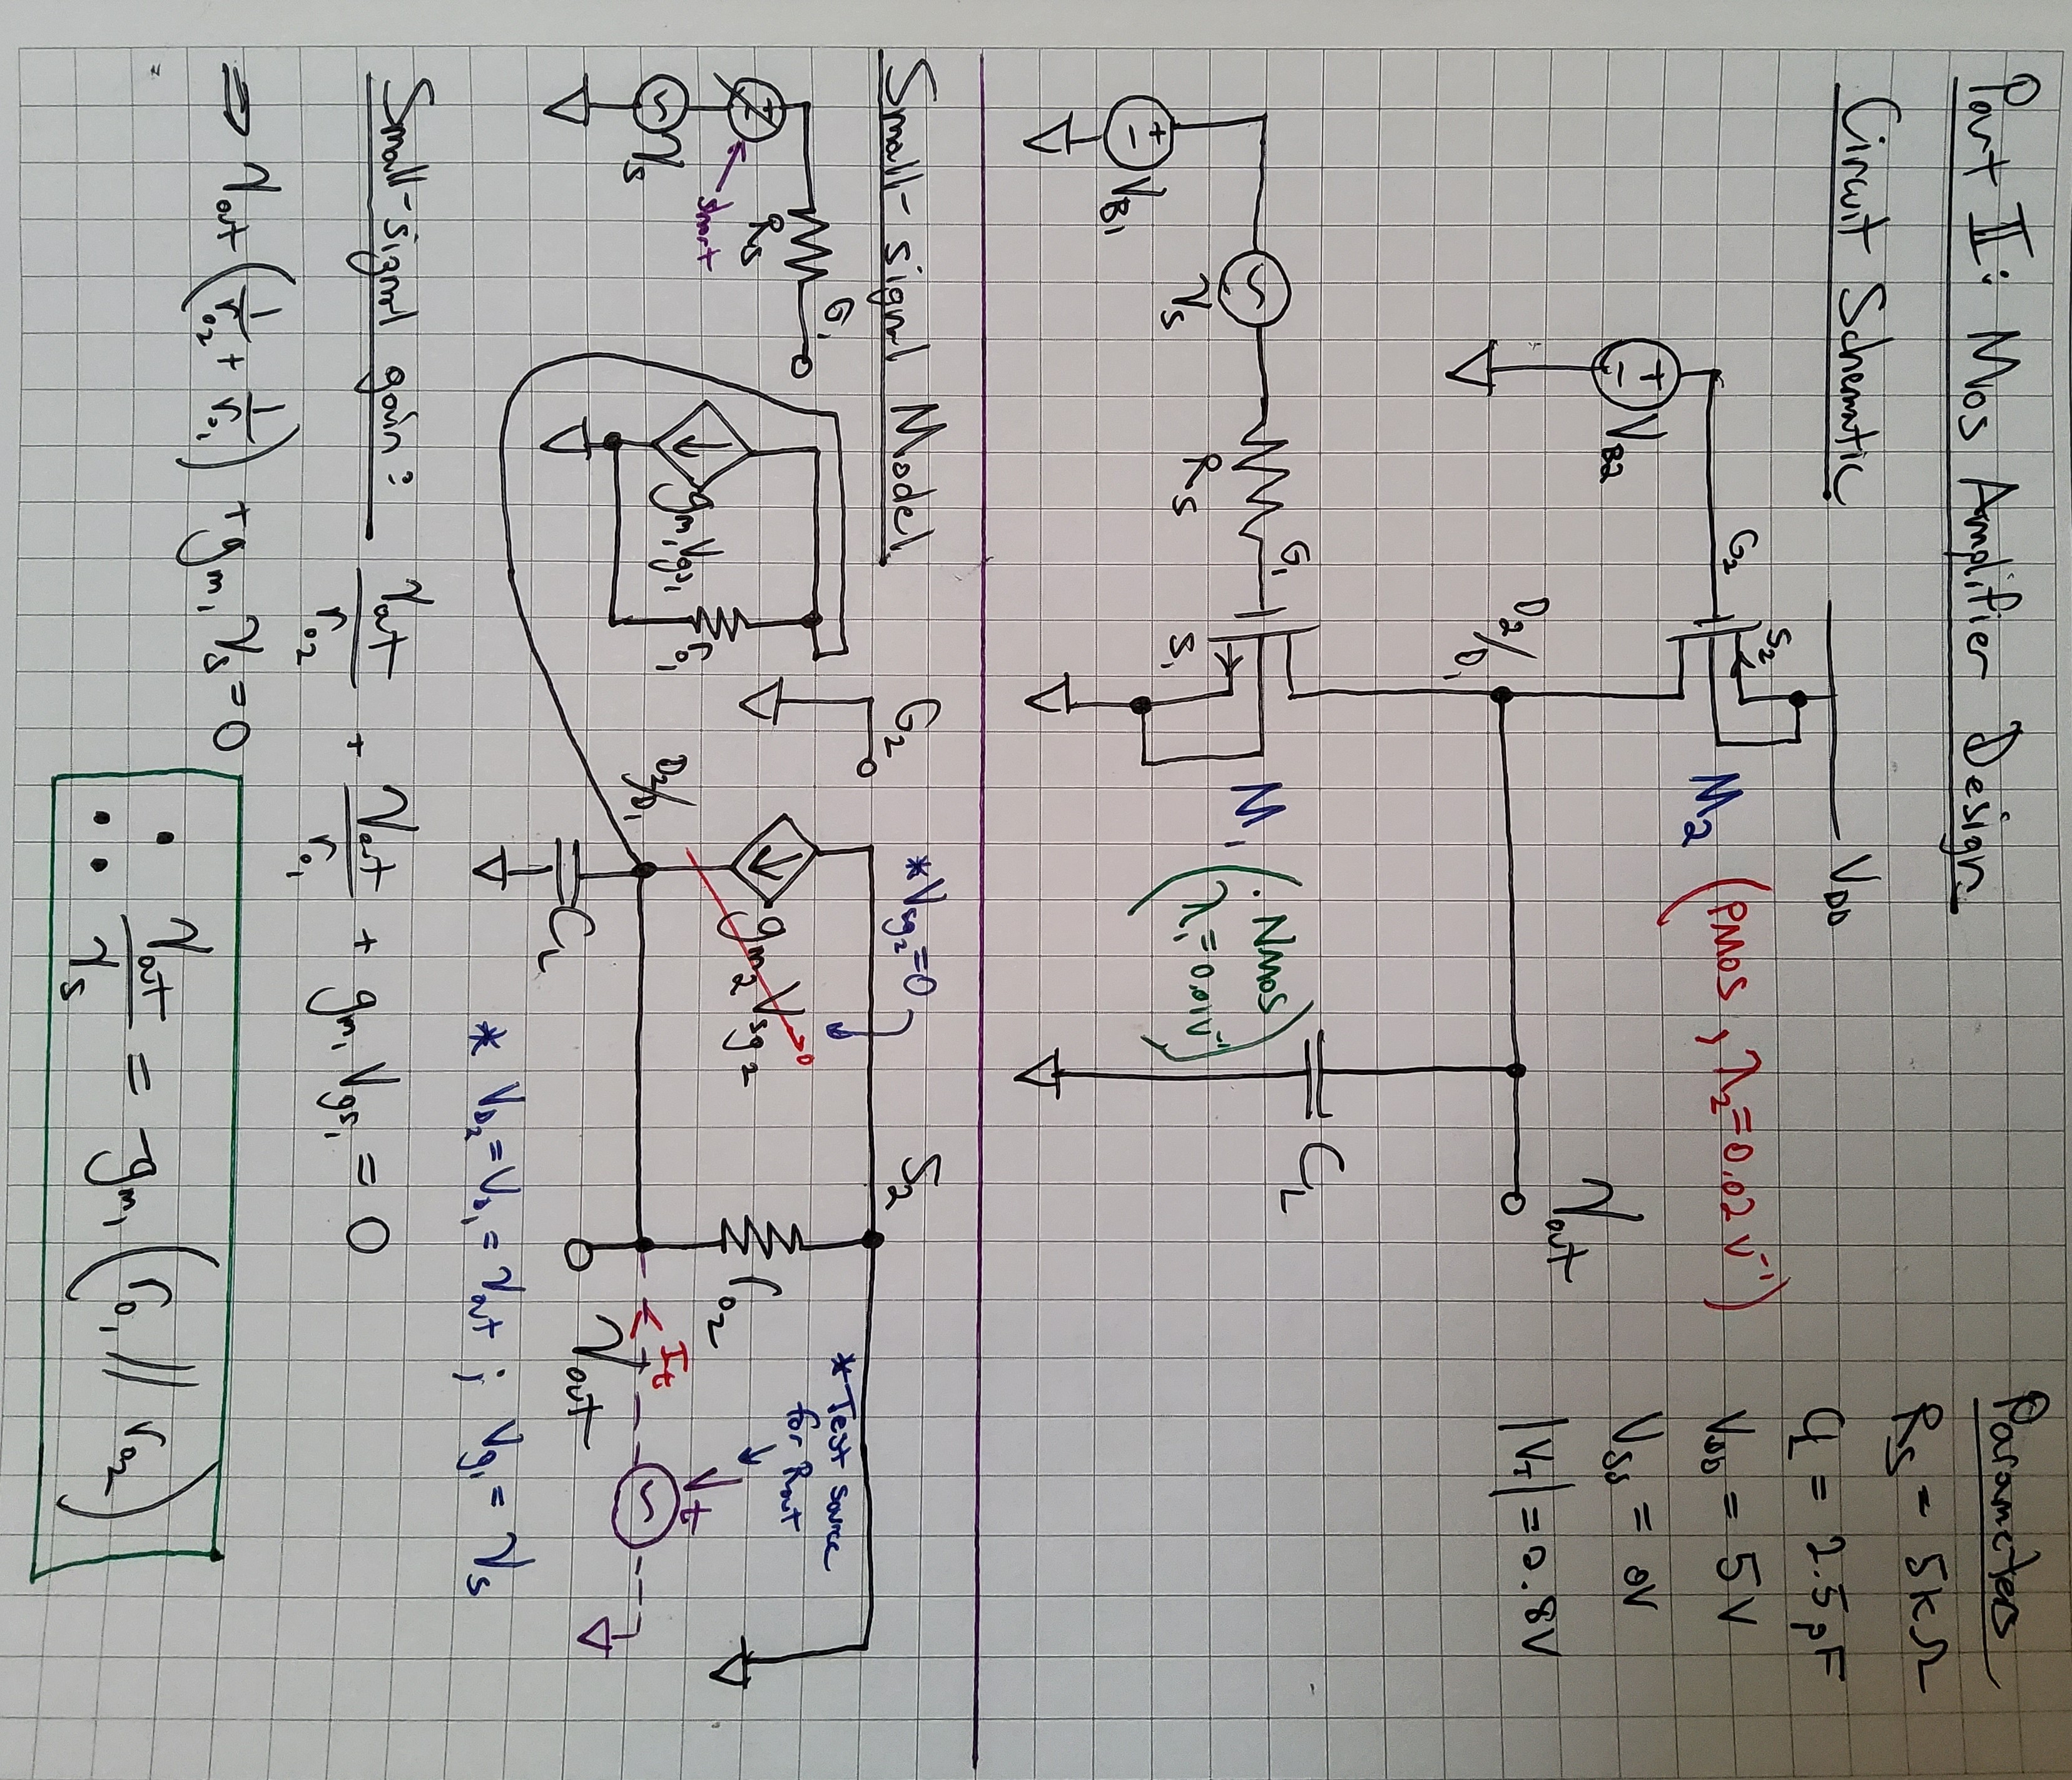 Part II: Mos Amplifier Design
Parameters
R_S = 5kΩ
C_L = 2.5pF
V_DD = 5V
V_SS = 0V
|V_T| = 0.8V
Circuit Schematic
V_DD
S_2
G_2
M_2 (PMOS, λ_2=0.02 V^-1)
+
-
V_B2
V_out
D_2/D_1
C_L
G_1
M_1 (NMOS
λ_1=0.01V^-1)
V_s
R_S
S_1
+
-
V_B1
Small-signal Model
G_2
*V_sg2=0
S_2
G_1
R_S
* Test source
for R_out
short
g_m2 V_sg2
0
r_o2
g_m1 V_gs1
r_o1
V_t
I_t
V_s
D_2/D_1
V_out
C_L
* V_D2=V_D1=V_out ; V_g1= V_s
Small-signal gain: V_out/r_o2 + V_out/r_o1 + g_m1 V_gs1 = 0
⇒ V_out (1/r_o2 + 1/r_o1) + g_m1 V_s = 0
∴ V_out/V_s = -g_m1 (r_o1 // r_o2)